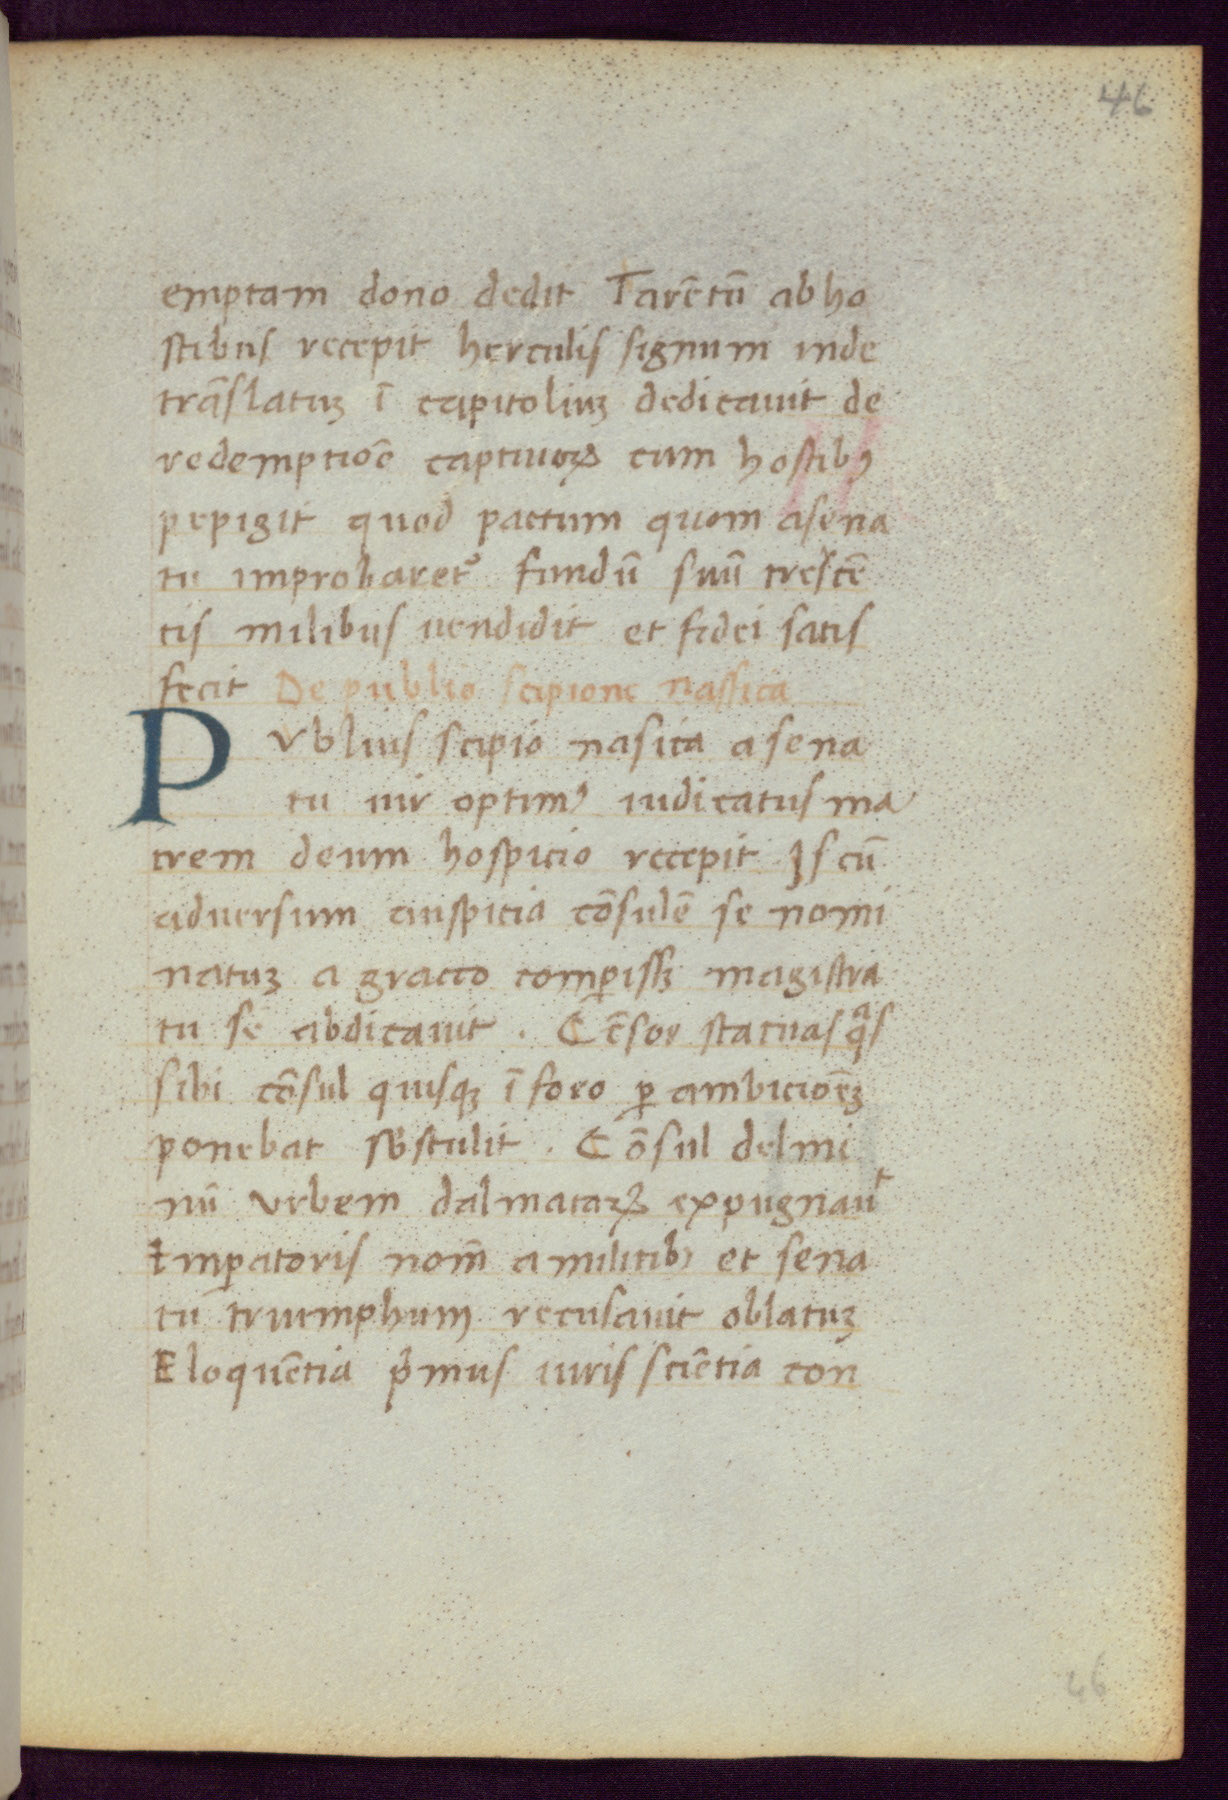 46
emptam dono dedit Tarētū ab ho
stibus recepit herculis signum inde
trāslatuꝫ ī capitoliuꝫ dedicauit de
redemptiōe captiuoꝝ cum hostibꝰ
pepigit quod pactum quom a sena
tu improbaretᷣ fundū suū trescē
tis milibus uendidit et fidei satis
fecit De publio scipione nassica
PVblius scipio nasica a sena
tu uir optimꝰ iudicatus ma
trem deum hospicio recepit Is cū
aduersum auspicia cōsulē se nomi
natuꝫ a gracco comꝑissꝫ magistra
tu se abdicauit . Cēsor statuas qᵃs
sibi cōsul quisqꝫ ī foro ꝑ ambiciōeꝫ
ponebat substulit . Cōsul delmi
nū vrbem dalmataꝝ expugnauᵗ
Imꝑatoris nom̄ a militibꝰ et sena
tu triumphum recusauit oblatuꝫ
Eloquētia p̄mus iuris sciētia con
46